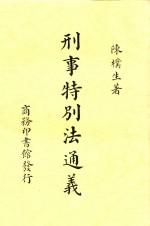 陳樸生著
刑事特別法通義
商務印書館發行